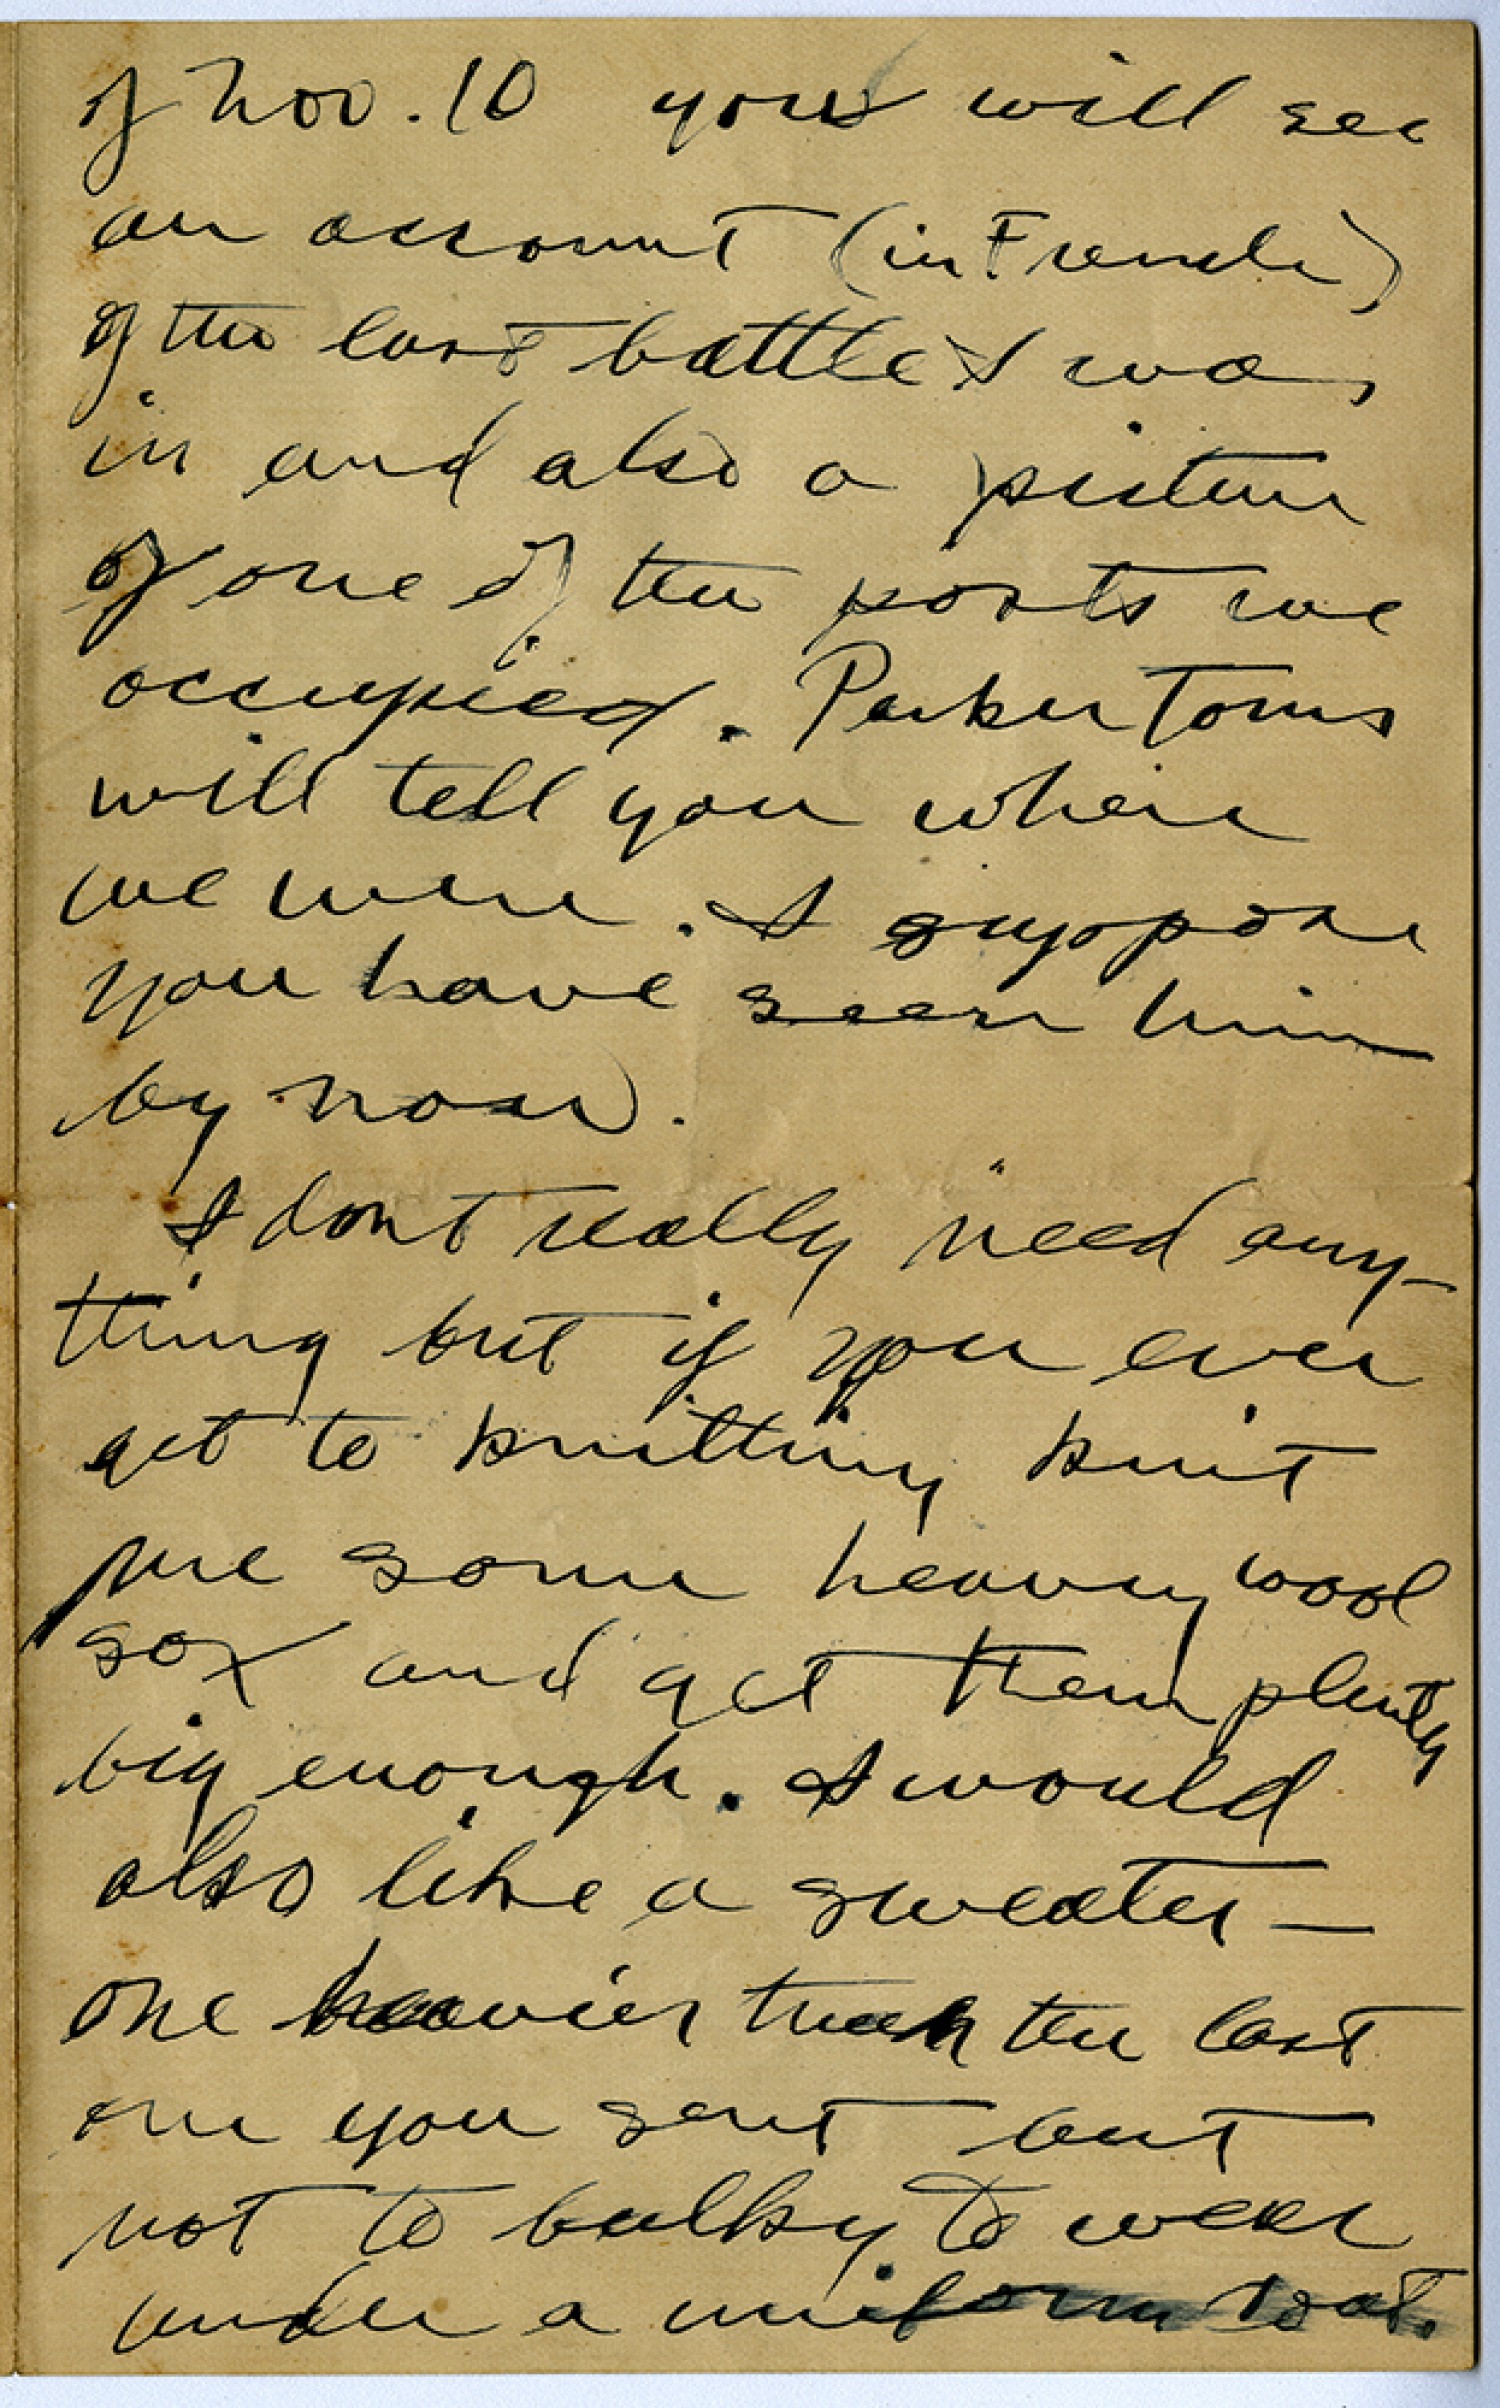 of Nov. 10 you will see
an account (in French)
of the last battle I was
in and also a picture
of one of the posts we
occupied. Parker Toms
will tell you where
we were. I suppose
you have seen him
by now.
I dont really need any-
thing but if you ever
get to knitting knit
me some heavy wool
sox and get them plenty
big enough. I would
also like a sweater —
one heavier than the last
one you sent but
not to bulky to wear
under a uniform coat.